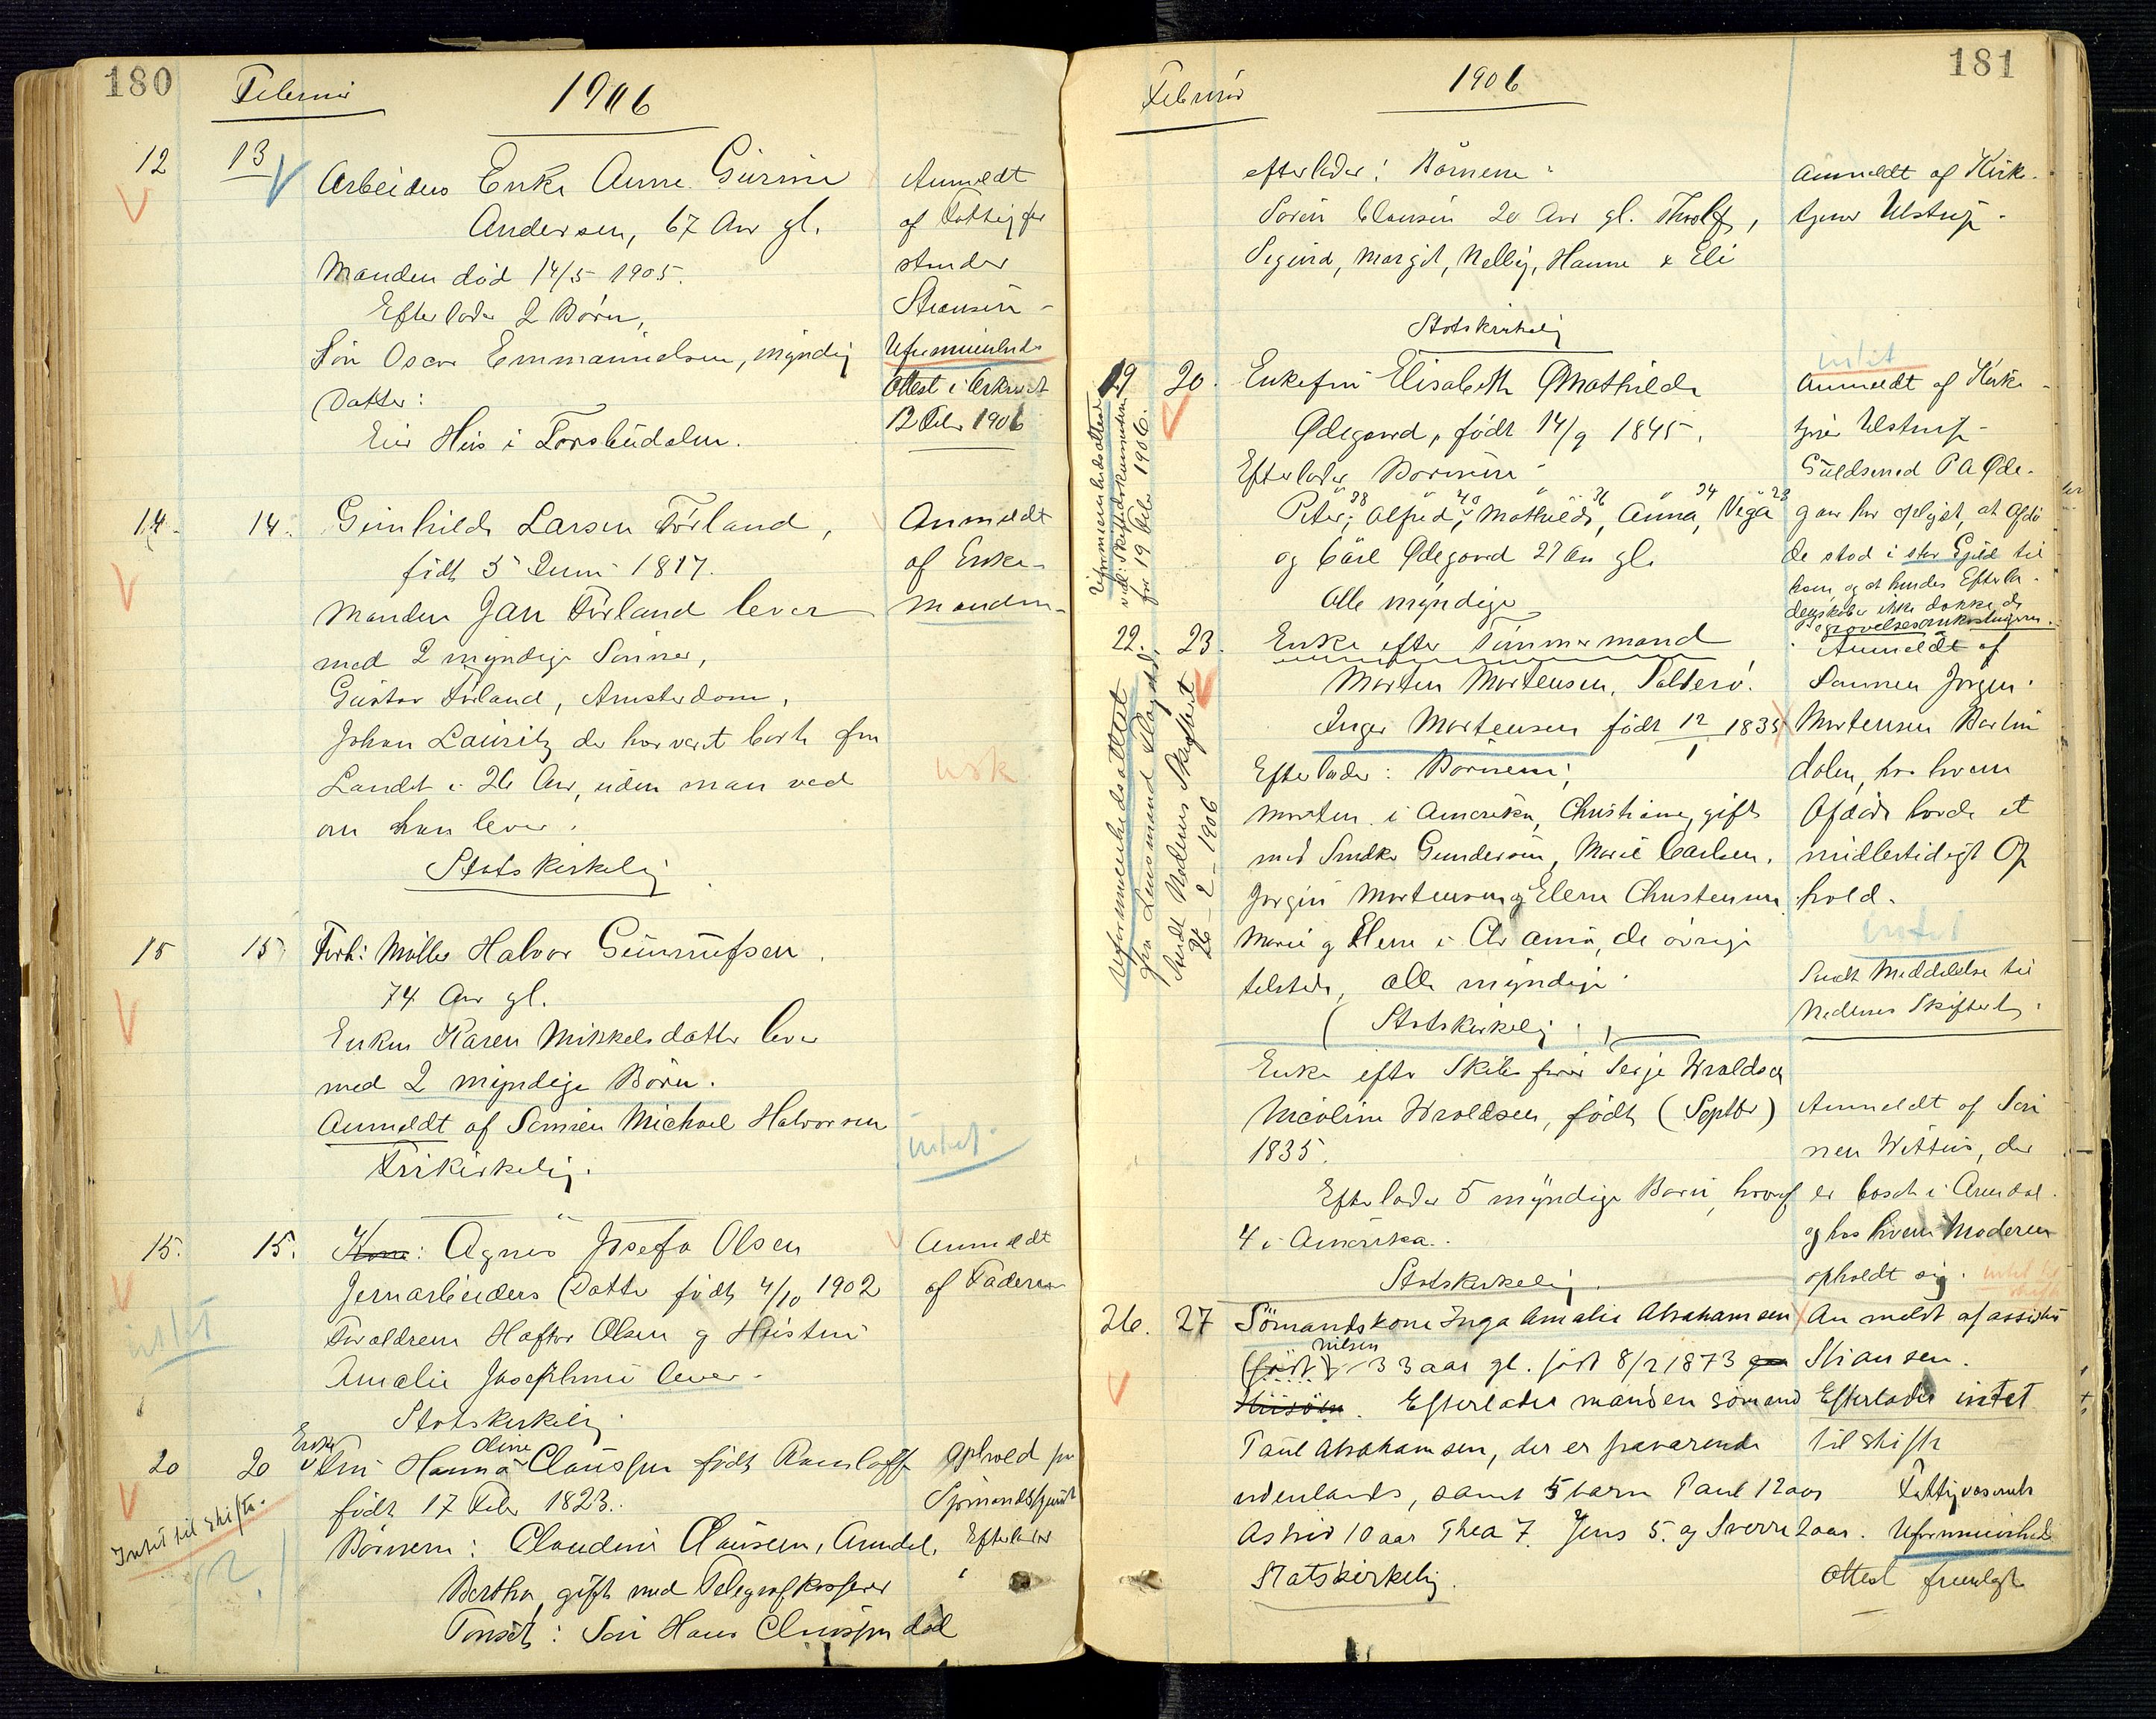 180
Februar
1906
12
13
Arbeiders Enke Anne Gurine
Andersen, 67 Aar gl.
Manden död 14/5 1905.
Efterlader 2 Börn,
Sön Oscar Emmanuelsen, myndig
Datter:
Eier Hus i Torsbudalen.
Anmeldt
af Fattigfor
stander
Stiansen
Uformuenheds
Attest i Arkivet
12 Feb. 1906
14.
14.
Gunhilde Larsen Förland,
födt 5 Juni 1817.
Manden Jan Förland lever
med 2 myndige Sönner,
Gustav Förland, Amsterdam,
Johan Lauritz der har været borte fra
Landet i 26 Aar, uden man ved
om han lever.
Statskirkelig
Anmeldt
af Enke-
manden-
usk.
15
15
Forh: Möller Halvor Gunnufsen.
74 Aar gl.
Enken Karen Mikkelsdatter lever
med 2 myndige Börn.
Anmeldt af Sönnen Michael Halvorsen
Frikirkelig.
intet
15.
15.
Kone: Agnes Josefa Olsen
Jernarbeiders Datter födt 4/10 1902
Forældrene Haftor Olsen og Hustru
Amalie Josephine lever.
Statskirkelig
Anmeldt
af Faderen
intet
20
20
Enke
Fru Hanna Oline Claussen födt
födt 17 Feb. 1823.
Börnene: Claudine Clausen, Arendal.
Bertha, gift med Telegrafkasserer
Tonseth: Sön Hans Claussen död
Ophold paa
Efterlader
Intet til Skifte.
181
Februar
1906
efterlader: Börnene:
Sören Clausen 20 Aar gl. Throlf,
Sigurd, Margit, Nelly, Hanne & Eli
Statskirkelig
Anmeldt af Kirke-
tjener Ulstrup.
19
20.
Enkefru Elisabeth Mathilde
Ødegaard, födt 14/9 1845.
Efterlader Börnene
Peter, 38 Alfred, 40 Mathilde, 36 Anna, 34 Vega 23
og Carl Ødegaard 27 Aar gl.
Alle myndige
intet
Anmeldt af Kirke-
tjener Ulstrup-
Guldsmed P A Øde-
gaar har oplyst, at Afdö
de stod i stor Gjeld til
ham, og at hendes Efterla-
denskaber ikke dække de
Begravelsesomkostninger.
Uformuenhedsattest
vedl. Skiftedokumenterne
fra 19 Feb. 1906.
22.
23.
Enke efter Tömmermand
Morten Mortensen, Salterö.
Inger Mortensen födt 12/1 1835
Efterlader: Börnene:
Morten i Amerika, Christiane, gift
med Smeder Gundersen, Marie Carlsen,
Jörgen Mortensen og Elen Christensen
Marie og Elene i Chr ania, de övrige
tilstede, alle myndige.
Statskirkelig
Anmeldt af
Sönnen Jörgen
Mortensen Barbu
dalen, hos hvem
Afdöde havde et
midlertidigt Op
hold.
intet
Sendt Meddelelse til
Nedenes Skifteret.
Uformuenhedsattest
fra Lensmand
Sendt Nedenes Skifteret
26-2-1906
Enke efter Skibsförer Terje Wroldsen
Nicoline Wroldsen, födt (Septbr)
1835.
Efterlader 5 myndige Börn, hvoraf
4 i Amerika.
Statskirkelig
Anmeldt af Sön
nen Wittus, der
er bosat i Arendal
og hos hvem Moderen
opholdt sig.
26.
27
Sömandskone Inga Amalie Abrahamsen
(födt) Nilsen 33 aar gl. födt 8/2 1873
Efterlader manden sömand
Paul Abrahamsen, der er fraværende
udenlands, samt 5 barn Paul 12 aar
Astrid 10 aar Thea 7. Jens 5. og Sverre 2 aar.
Statskirkelig
Anmeldt af assistent
Stiansen.
Efterlader intet
til skifte
Fattigvæsenets
Uformuenheds
attest fremlagt